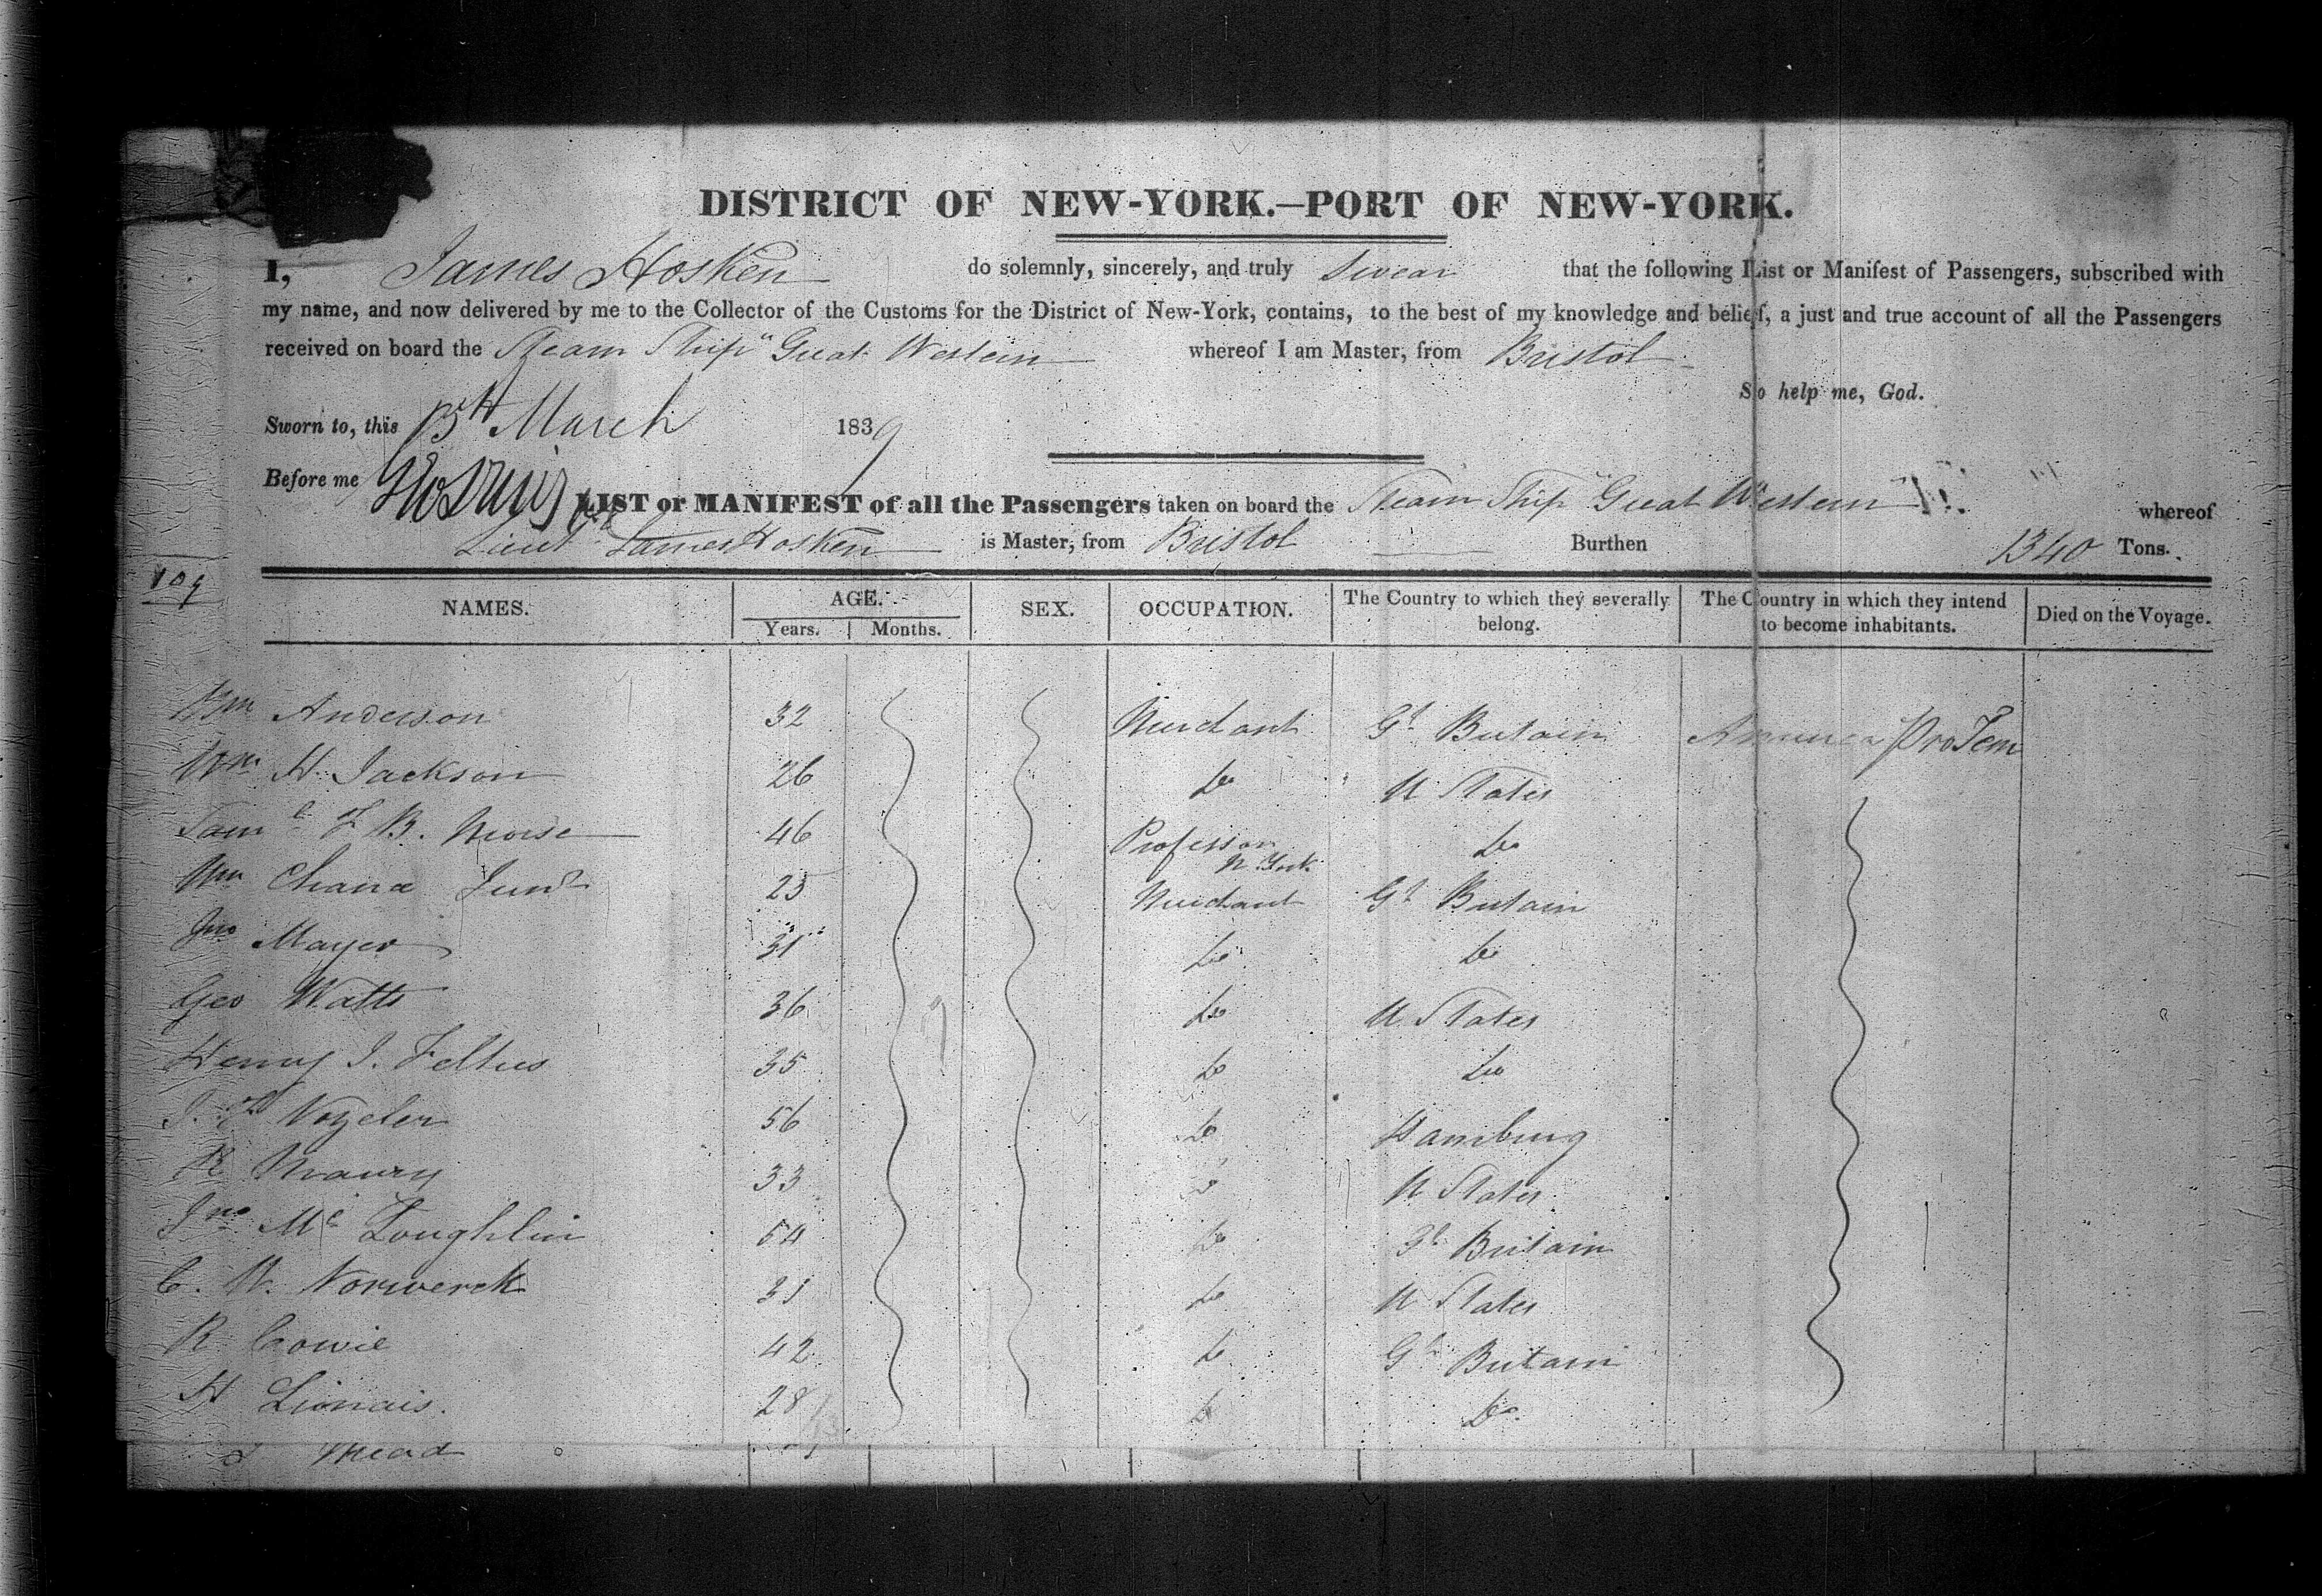 DISTRICT OF NEW-YORK.—PORT OF NEW-YORK.
I, James Hosken do solemnly, sincerely, and truly Swear that the following List or Manifest of Passengers, subscribed with
my name, and now delivered by me to the Collector of the Customs for the District of New-York, contains, to the best of my knowledge and belief, a just and true account of all the Passengers
received on board the Steam Ship "Great Western whereof I am Master, from Bristol
So help me, God.
Sworn to, this 15th March 1839
Before me
LIST or MANIFEST of all the Passengers taken on board the Steam Ship "Great Western" whereof
Lieut James Hosken is Master, from Bristol Burthen 1340 Tons.
109
NAMES. AGE. SEX. OCCUPATION. The Country to which they severally belong. The Country in which they intend to become inhabitants. Died on the Voyage.
Years. Months.
Wm Anderson 32 Merchant Gt Britain America ProTem
Wm H. Jackson 26 Do U States
Saml F B. Morse 46 Professor N. York Do
Wm Chana Junr 25 Merchant Gt Britain
Jno Mayer 31 Do Do
Geo Watts 36 Do U States
Henry J. Feltus 35 Do Do
J. Nozeler 56 Do Hamburg
R Maury 33 Do U States
Jno Mc Loughlin 54 Do Gt Britain
C. W. Vorwerck 31 Do U States
R Cowie 42 Do Gt Britain
H Lionais. 28 Do Do.
Mead